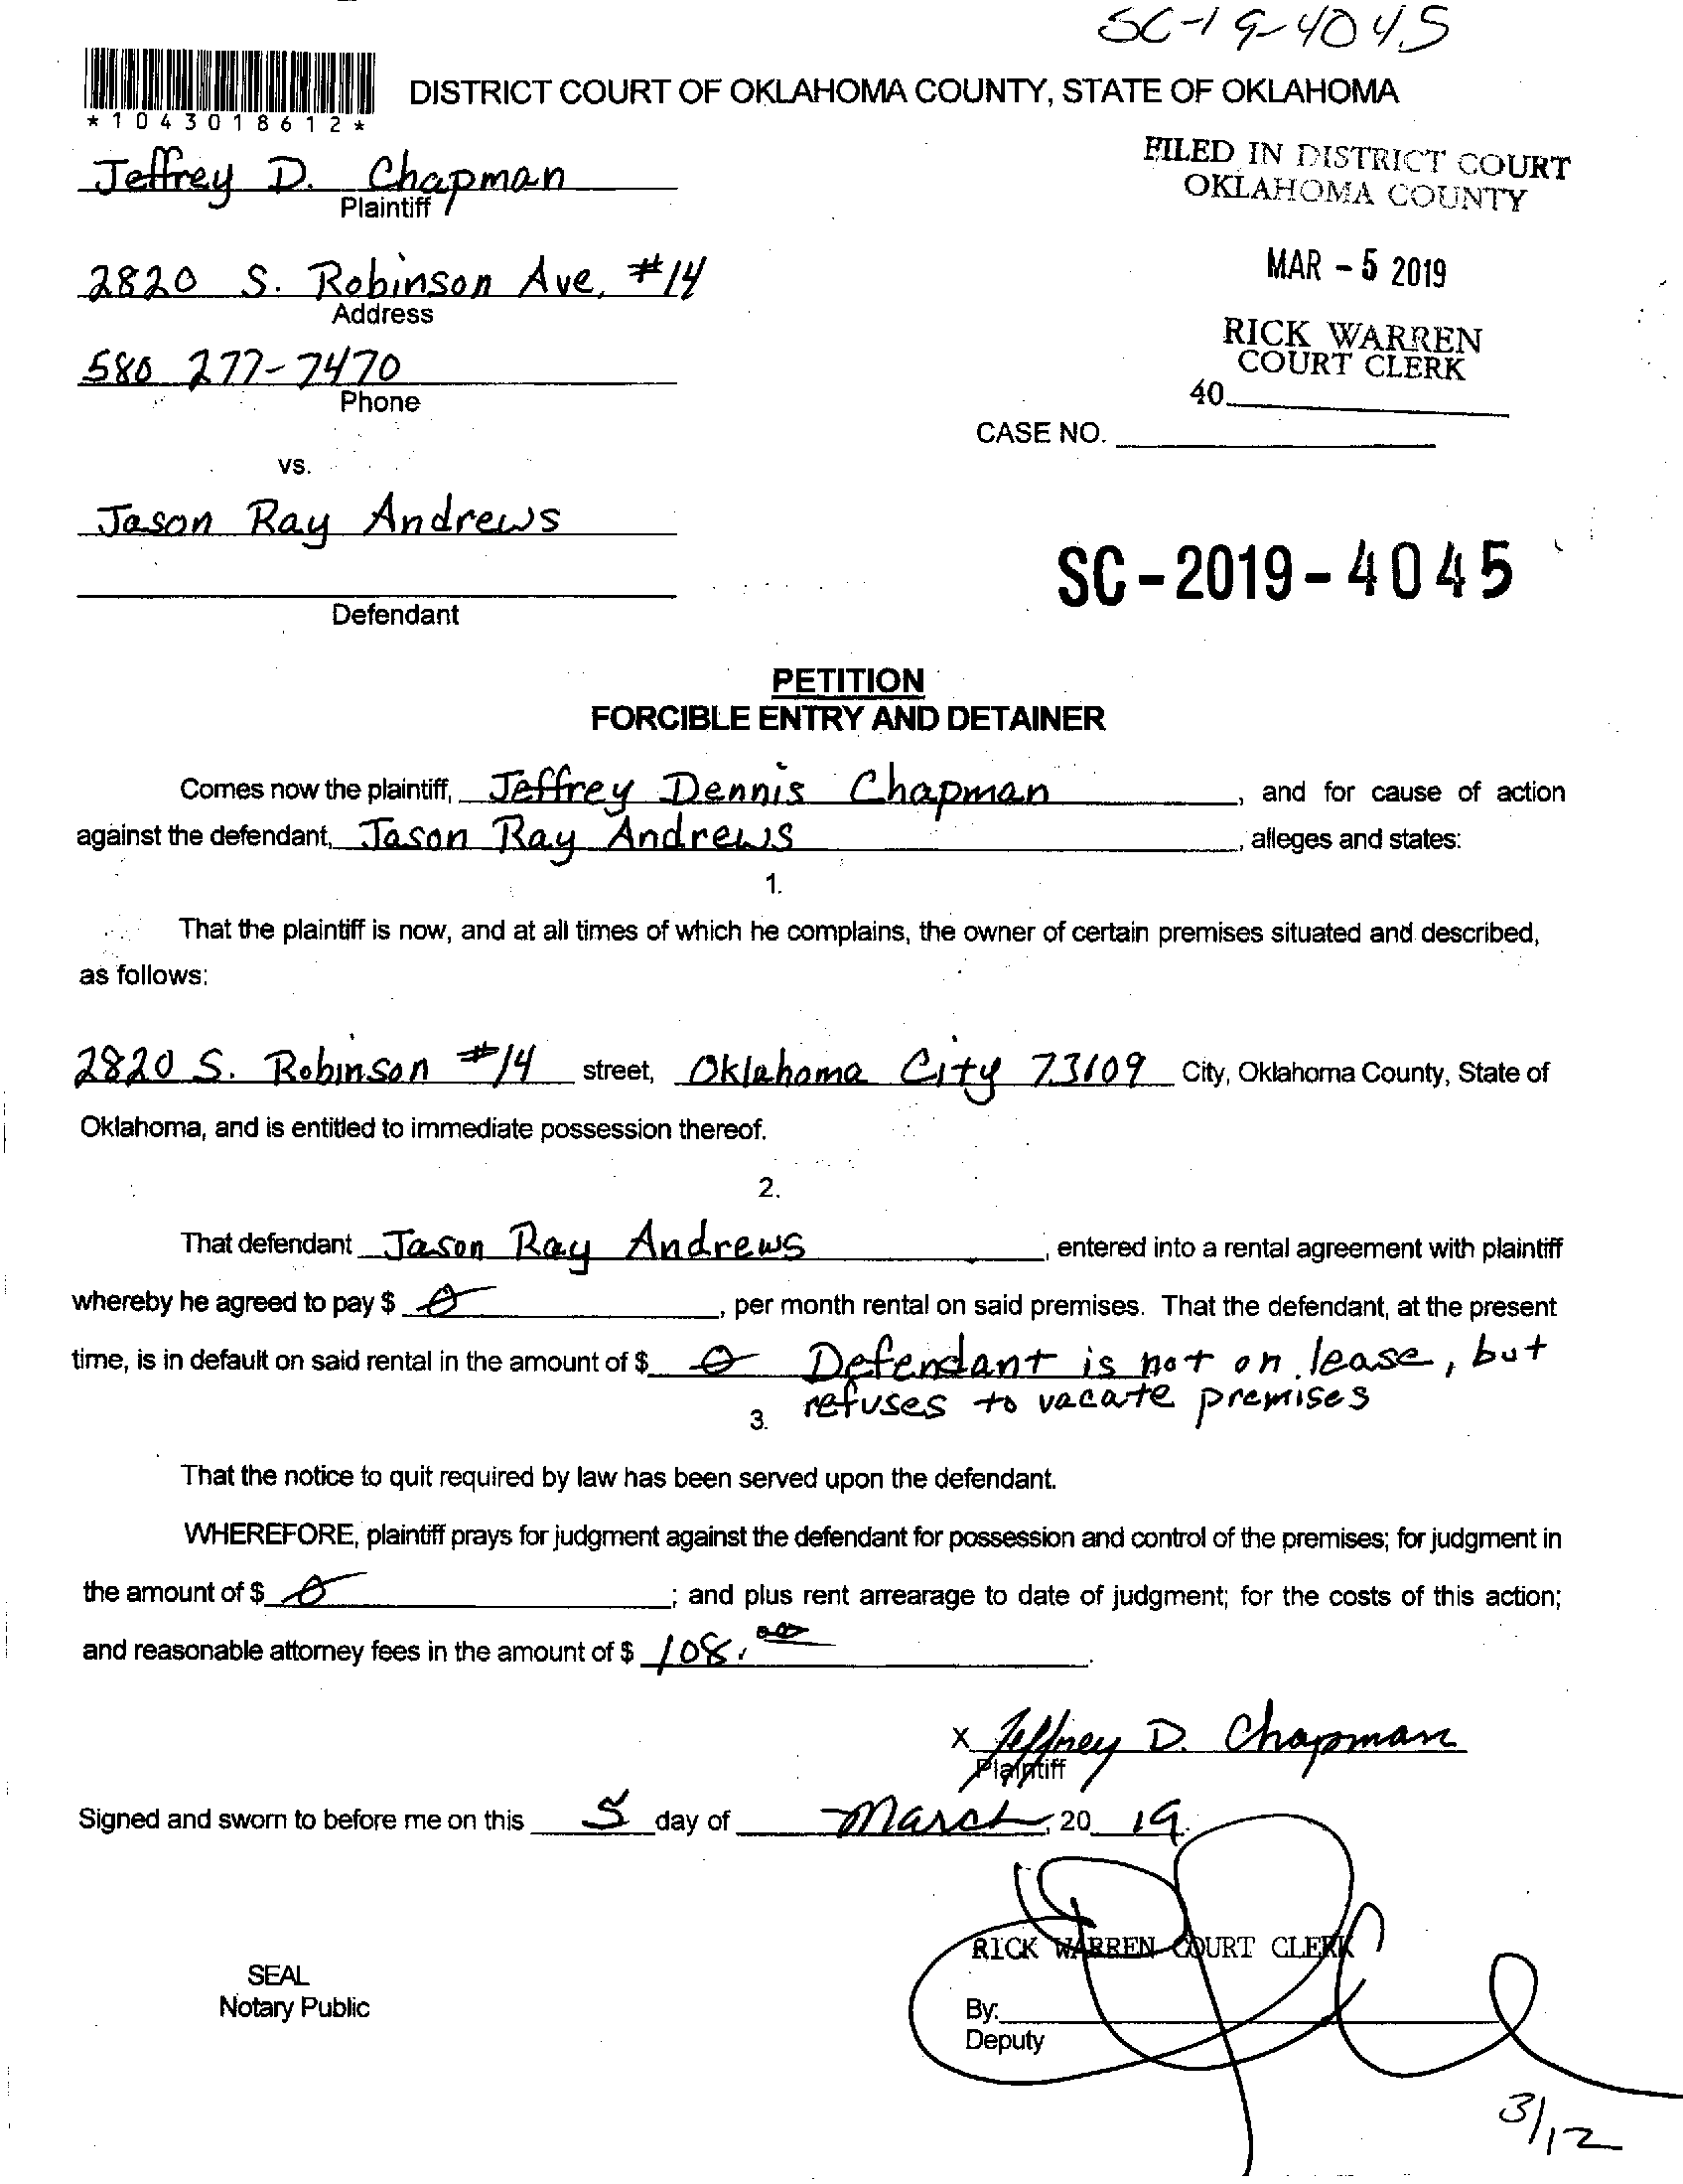 SC-19-4045
*1043018612*
DISTRICT COURT OF OKLAHOMA COUNTY, STATE OF OKLAHOMA
FILED IN DISTRICT COURT
OKLAHOMA COUNTY
Jeffrey D. Chapman
Plaintiff
MAR - 5 2019
2820 S. Robinson Ave, #14
Address
RICK WARREN
COURT CLERK
580 277-7470
Phone
40
CASE NO.
vs.
Jason Ray Andrews
SC-2019-4045
Defendant
PETITION
FORCIBLE ENTRY AND DETAINER
Comes now the plaintiff, Jeffrey Dennis Chapman, and for cause of action
against the defendant, Jason Ray Andrews, alleges and states:
1.
That the plaintiff is now, and at all times of which he complains, the owner of certain premises situated and described,
as follows:
2820 S. Robinson #14 street, Oklahoma City 73109 City, Oklahoma County, State of
Oklahoma, and is entitled to immediate possession thereof.
2.
That defendant Jason Ray Andrews, entered into a rental agreement with plaintiff
whereby he agreed to pay $ 0, per month rental on said premises. That the defendant, at the present
time, is in default on said rental in the amount of $ 0 Defendant is not on lease, but
refuses to vacate premises
3.
That the notice to quit required by law has been served upon the defendant.
WHEREFORE, plaintiff prays for judgment against the defendant for possession and control of the premises; for judgment in
the amount of $ 0; and plus rent arrearage to date of judgment; for the costs of this action;
and reasonable attorney fees in the amount of $ 108.00.
X Jeffrey D. Chapman
Plaintiff
Signed and sworn to before me on this 5 day of March, 20 19.
RICK WARREN COURT CLERK
SEAL
Notary Public
By:
Deputy
3/12